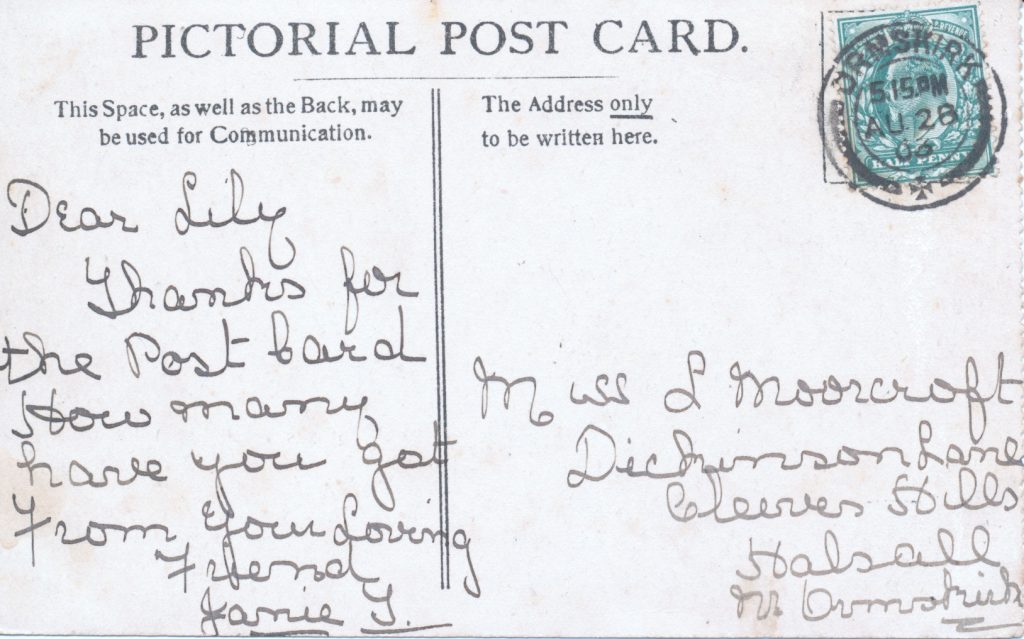 PICTORIAL POST CARD.
This Space, as well as the Back, may
be used for Communication.
The Address only
to be written here.
ORMSKIRK
5.15.PM
AU 28
HALF PENNY
Dear Lily
Thanks for
the Post Card
How many
have you got
From your Loving
Friend
Janie T.
Miss L Moorcroft
Dickinson Lane
Cleeves Hills
Halsall
Nr Ormskirk